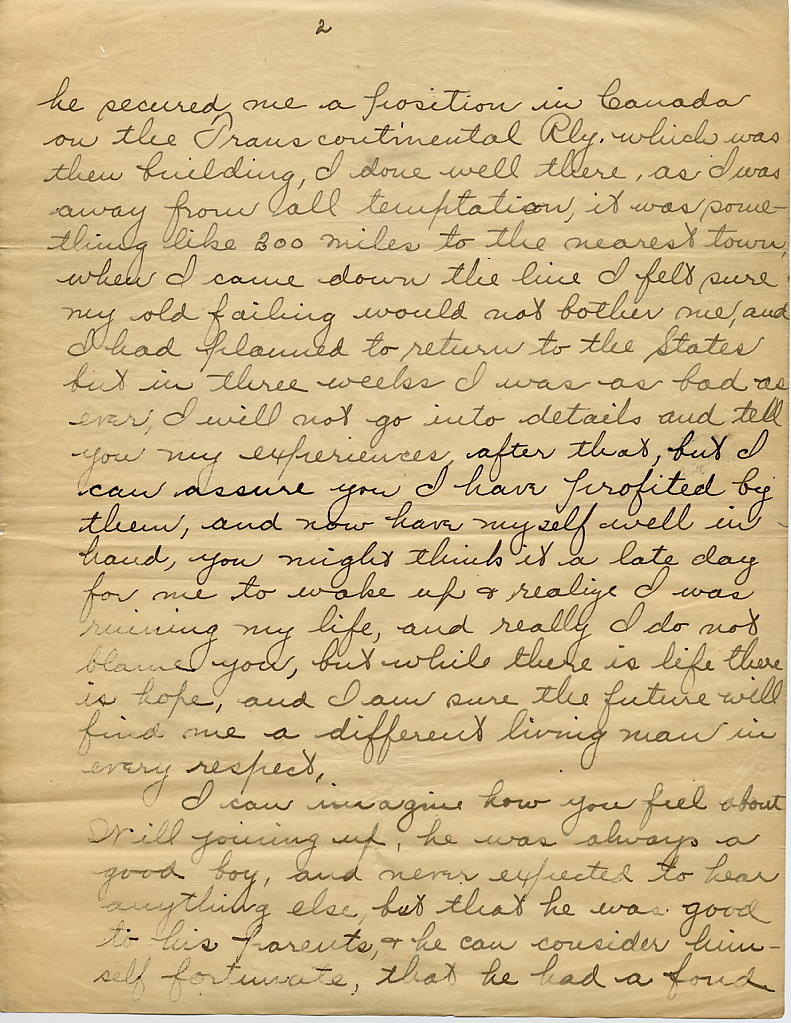 2
he secured me a position in Canada
on the Trans continental Rly. which was
then building, I done well there, as I was
away from all temptation, it was some-
thing like 200 miles to the nearest town,
when I came down the line I felt sure
my old failing would not bother me, and
I had planned to return to the States
but in three weeks I was as bad as
ever, I will not go into details and tell
you my experiences after that, but I
can assure you I have profited by
them, and now have myself well in
hand, you might think it a late day
for me to wake up & realize I was
ruining my life, and really I do not
blame you, but while there is life there
is hope, and I am sure the future will
find me a different living man in
every respect,
I can imagine how you feel about
Will joining up, he was always a
good boy, and never expected to hear
anything else, but that he was good
to his parents, & he can consider him-
self fortunate, that he had a fond